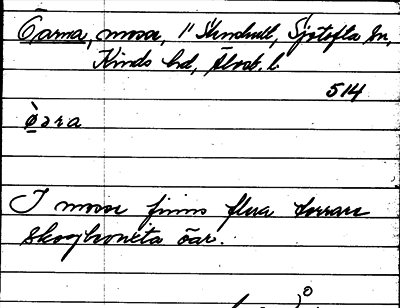 Öarna, mosse, 1" Stenhult, Sjötofta sn,
Kinds hd, Älvsb. l.
514
ò̱ara
I mosse finns flera torrare
skogbevuxna öar.